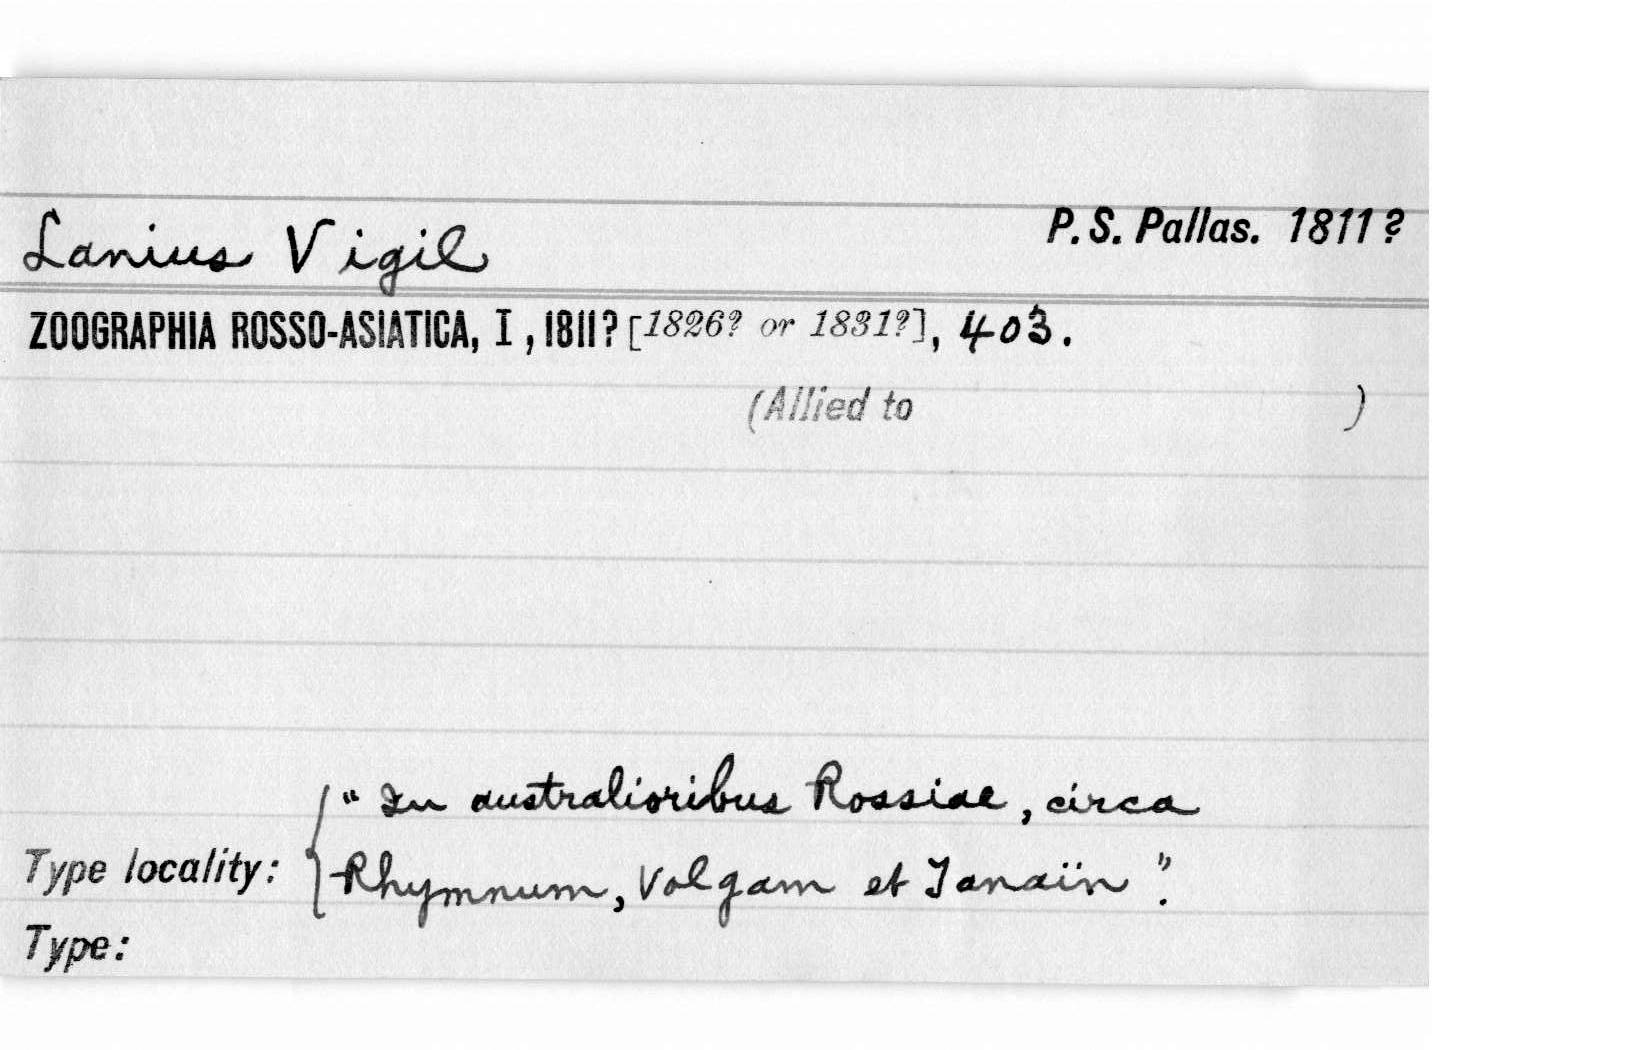 Lanius Vigil
P. S. Pallas. 1811?
ZOOGRAPHIA ROSSO-ASIATICA, I, 1811? [1826? or 1831?], 403.
(Allied to )
"In australioribus Rossiae, circa
Type locality: Rhymnum, Volgam et Tanaïn".
Type: